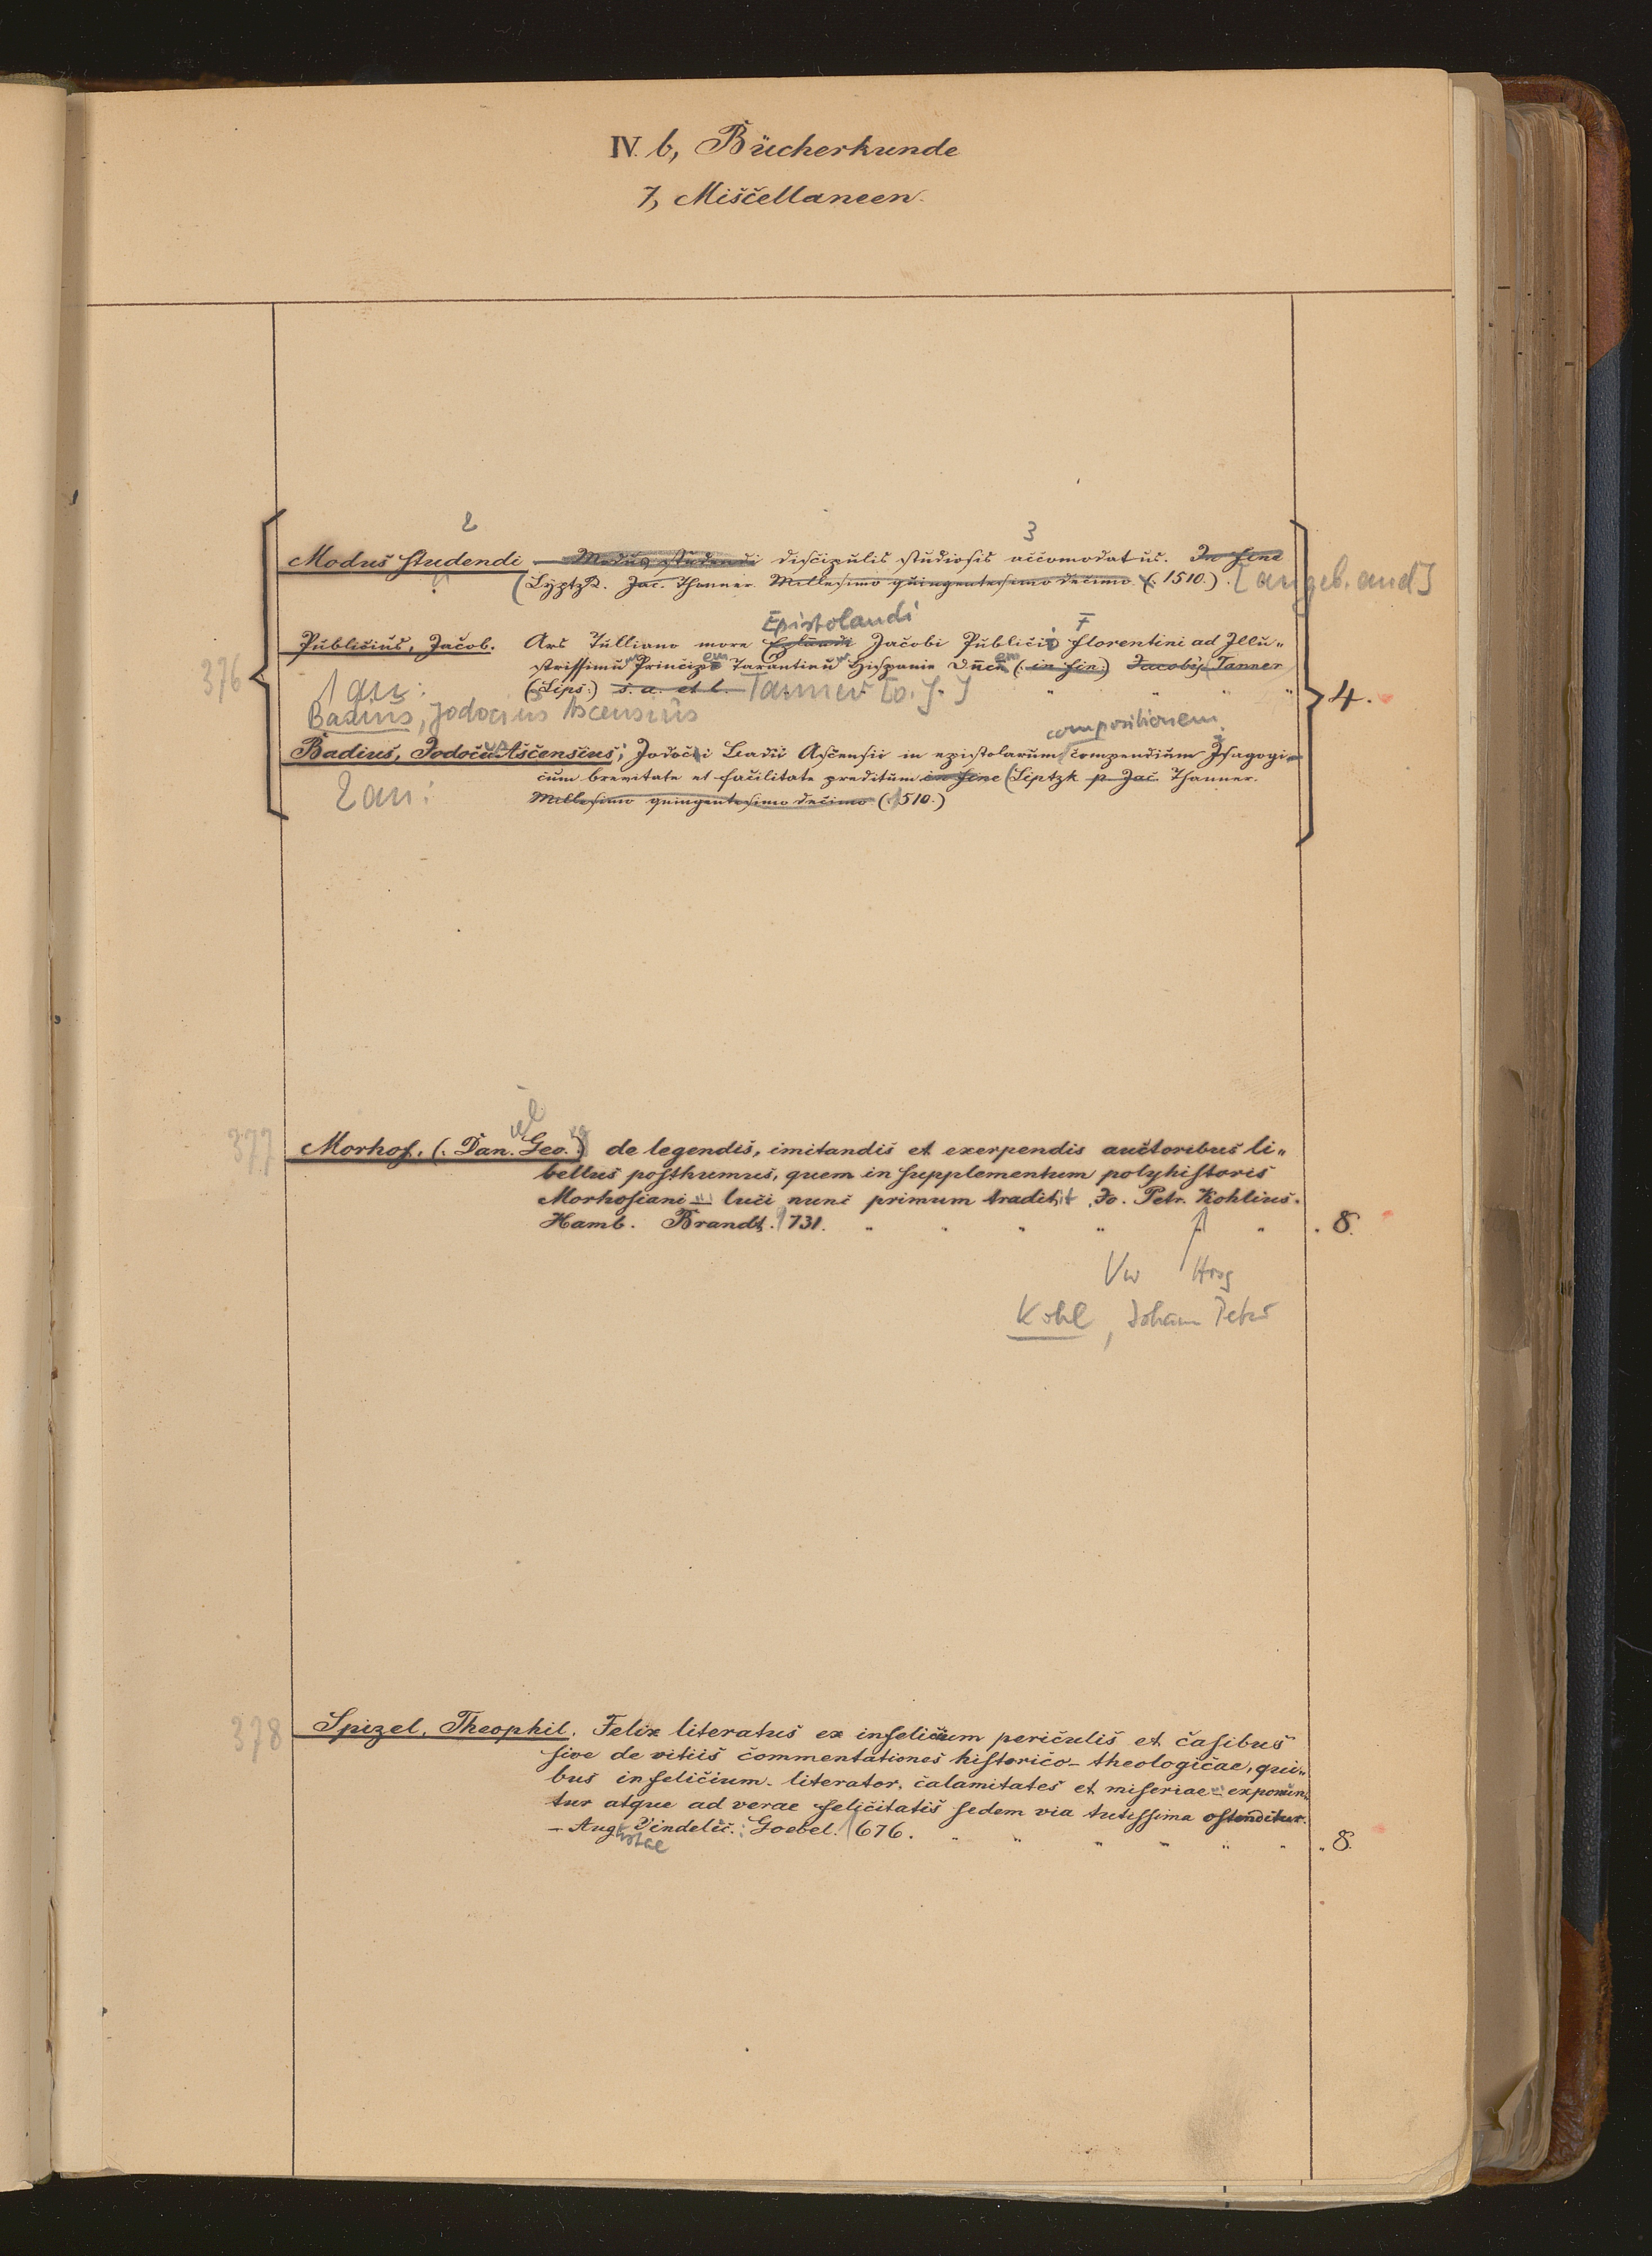 IV. b, Bücherkunde
7, Miscellaneen.
2 3
Modus studendi. Modus studendi discipulis studiosis accomodatus. In fine
(Lyptzk. Jac. Thanner. Millesimo quingentesimo decimo (. 1510.). [angeb. and]
Epistolandi F
376 Publicius, Jacob. Ars Tulliano more Jacobi Publicii florentini ad Illu-
strissimu Princip em Tarantinu Hispanie Ducem (. in fin.) Jacobi Tanner
(Lips.) s. a. et l. Tanner [o. J.] 4.
1 an:
Badius, Jodocius Ascensius
compositionem
Badius, Jodocus Ascensius; Jodoci Badii Ascensii in epistolarum compendium Isagogi-
cum brevitate et facilitate preditum in fine (Liptzk p. Jac. Thanner.
2 an: Millesimo quingentesimo decimo (.1510.)
377 Morhof. (. Dan. Geo.) de legendis, imitandis et exerpendis auctoribus li-
bellus posthumus, quem in supplementum polyhistoris
Morhofiani luci nunc primum tradit Jo. Petr. Kohlius.
Hamb. Brandt. 1731. " " " " " " . 8.
Vw Hrsg
Kohl, Johann Peter
378 Spizel. Theophil. Felix literatus ex infelicium periculis et casibus
sive de vitiis commentationes historico-theologicae, qui-
bus infelicium literator. calamitates et miseriae exponun-
tur atque ad verae felicitatis sedem via tutissima ostenditur.
- Augustae Vindelic.: Goebel. 1676. " " " " " " . 8.